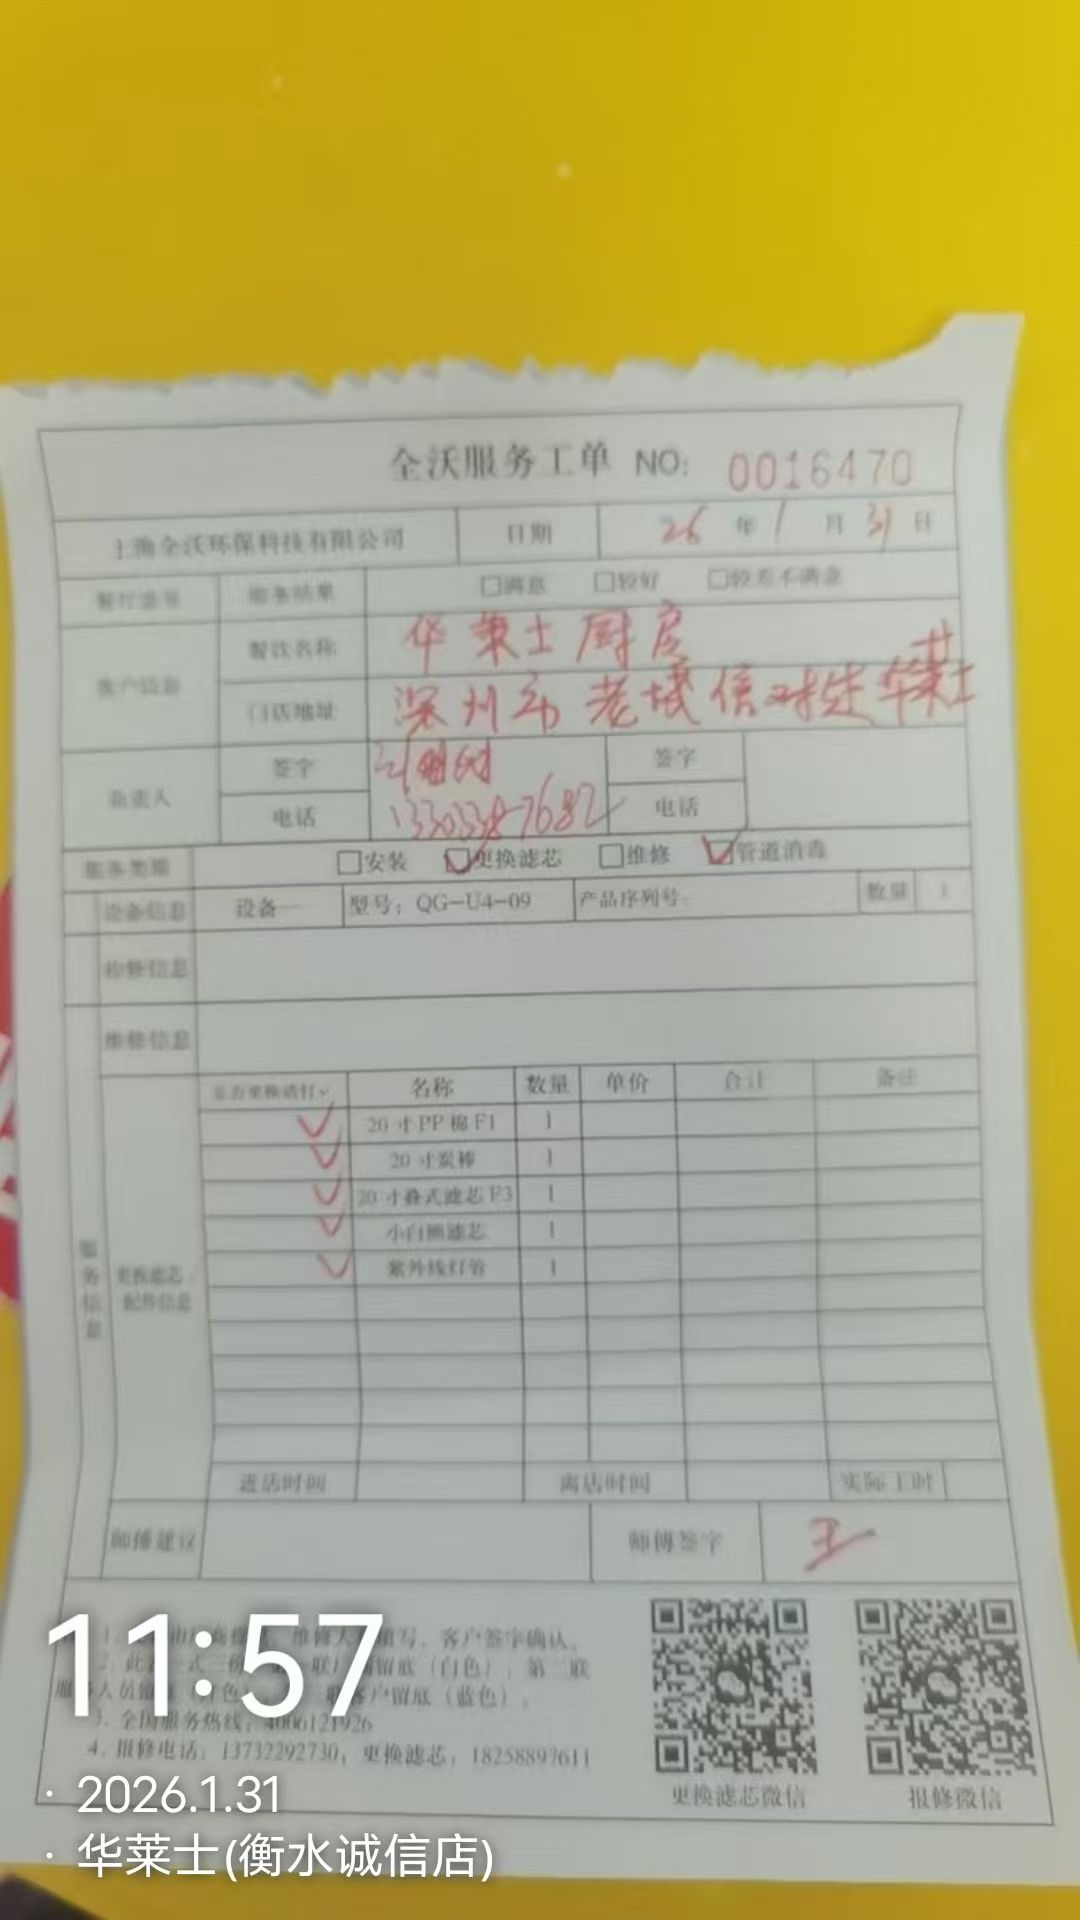 全沃服务工单 NO: 0016470
上海全沃环保科技有限公司 日期 26 年 1 月 31 日
服务结果 □满意 □较好 □较差不满意
客户信息 餐饮名称 华莱士厨房
门店地址 深州市老城信对过华莱士
负责人 签字 签字
电话 电话
服务类别 □安装 ☑更换滤芯 □维修 ☑管道消毒
设备信息 设备一 型号: QG-U4-09 产品序列号: 数量 1
检修信息
维修信息
服务信息
更换滤芯、配件信息
是否更换请打✓ 名称 数量 单价 合计 备注
✓ 20寸PP棉F1 1
✓ 20寸炭棒 1
✓ 20寸叠式滤芯F3 1
✓ 小白熊滤芯 1
✓ 紫外线灯管 1
进店时间 离店时间 实际工时
师傅建议 师傅签字 王
填写,客户签字确认。
留底(白色),第二联
客户留底(蓝色)。
3. 全国服务热线: 4006121926
4. 报修电话: 13732292730; 更换滤芯: 18258897611
更换滤芯微信 报修微信
11:57
· 2026.1.31
· 华莱士(衡水诚信店)